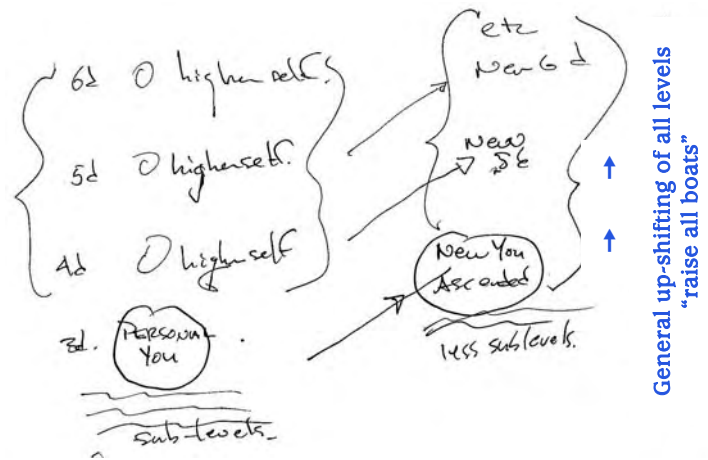 6d O higher self.
5d O higherself.
4d O higherself
3d. PERSONAL
You
sub-levels.
etc
New 6 d
New
5d
New You
Ascended
less sublevels.
General up-shifting of all levels
“raise all boats”